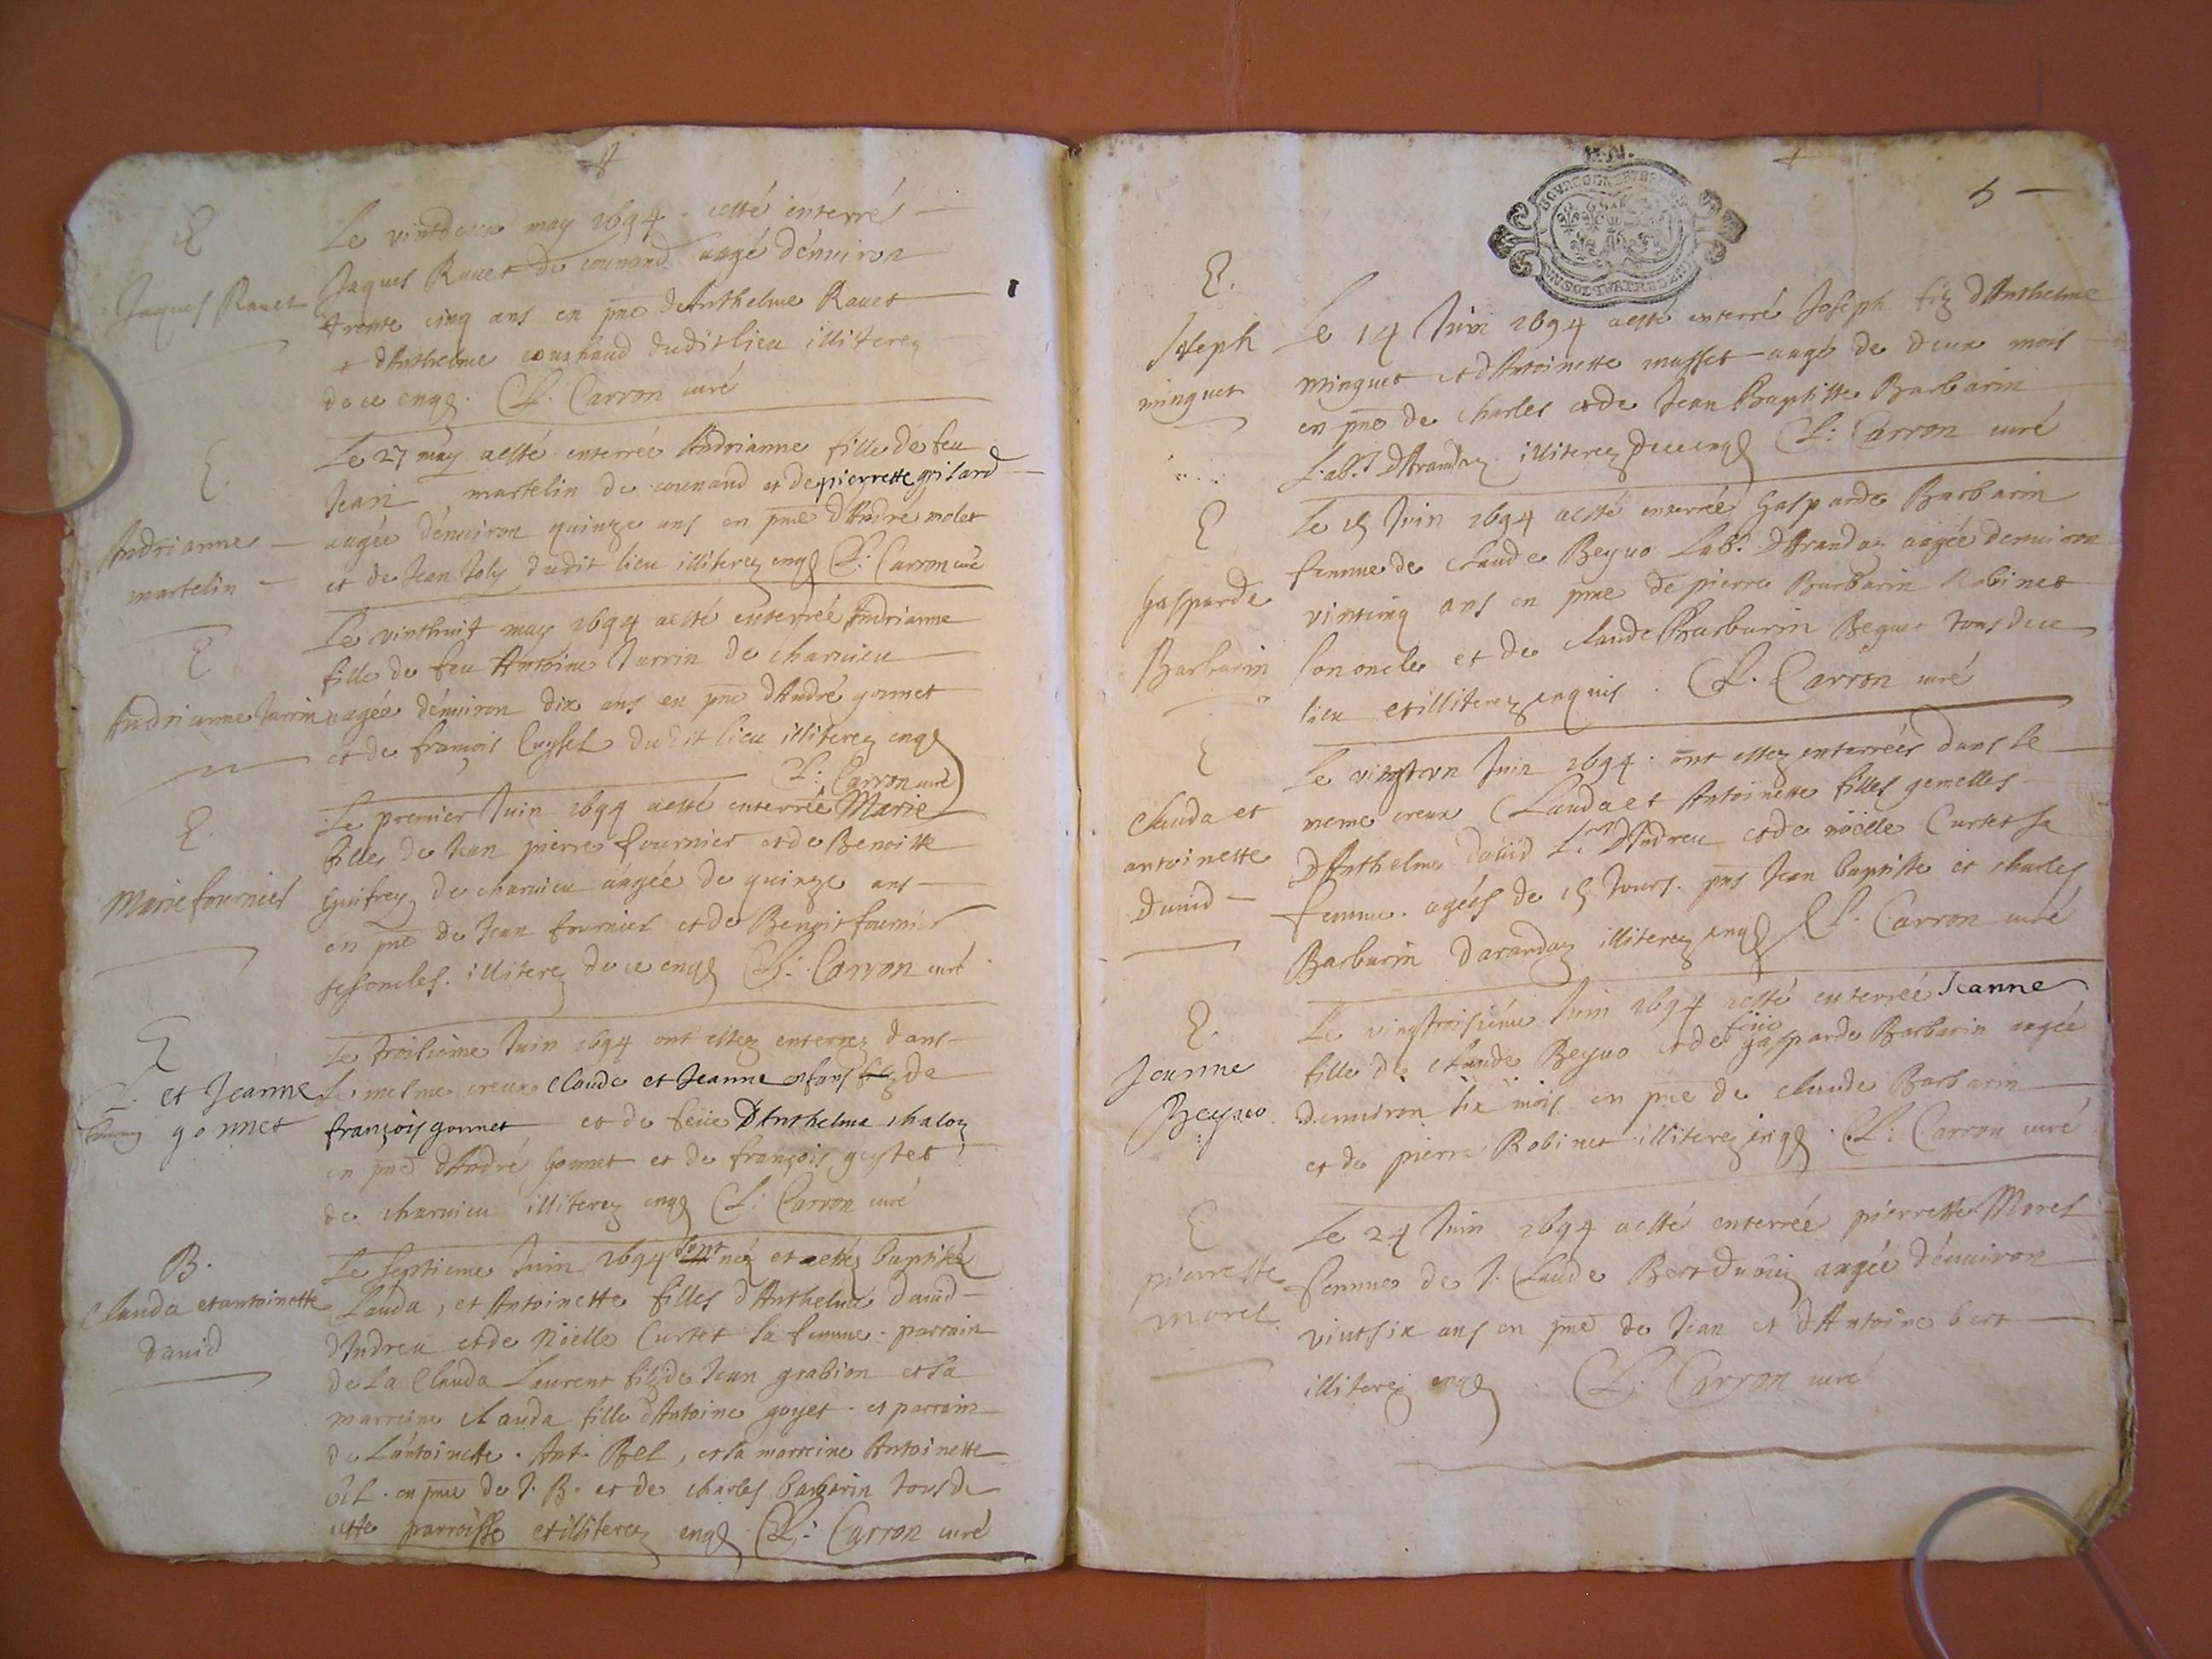 E
Jaques Rauet
Le vintdeux may 1694 . aesté enterrés
Jaques Rauet de counand aagé dénuiron
trente cinq ans en pnce deAnthelme Rauet
et dAnthelme counhaud dudit lieu illiterez
de ce enqs. L. Carron curé
E.
Andrianne
martelin
Le 27 may aesté enterrée Andrianne fille de feu
Jean martelin de counand et de pierrette grisard
aagée dénuiron quinze ans en pnce dAndré molet
et de Jean Joly dudit lieu illiterez enqs L: Carron curé
E
Andrianne Jarrin
Le vinthuit may 1694 aesté enterrée Andrianne
fille de feu Antoine Jarrin de charuieu
aagée dénuiron dix ans en pnce dAndré gonnet
et de françois du dit lieu illiterez enqs
L: Carron curé
E.
Marie fournier
Le premier Juin 1694 aesté enterrée Marie
fille de Jean pierre fournier et de Benoitte
Guifrey de charuieu aagée de quinze ans
en pnce de Jean fournier et de Benoit fournier
ses oncles. illiterez de ce enqs L: Carron curé
E
et Jeanne
gonnet
Le troisième Juin 1694 ont estez enterrez dans
le mesme creux claude et Jeanne enfans de
françois gonnet et de feüe DAnthelme chaloz
en pnce dAndré Gonnet et de françois guytet
de charuieu illiterez enqs L: Carron curé
B.
Clauda et antoinette
dauid
Le septieme Juin 1694 sont néz et estez baptisés
Clauda, et Antoinette filles dAnthelme dauid
dAndreu et de Nöelle Curtet sa femme . parrain
de La Clauda Laurent filz de Jean grabion et la
marreine clauda fille dAntoine goyet . et parrain
de Lantoinette . Ant. Bel, et la marreine Antoinette
bel . en pnce de J. B. et de charles barbarin tous de
cette parroisse et illiterez enqs . L: Carron curé
5
E.
Joseph
minguet
Le 14 Juin 1694 aesté enterré Joseph filz dAnthelme
minguet et dAntoinette musset aagé de deux mois
en pnce de charles et de Jean Baptitte Barbarin
Lab.r DArandaz illiterez de ce enqs L: Carron curé
E
Gasparde
Barbarin
Le 15 Juin 1694 aesté enterrée Gasparde Barbarin
femme de claude Beyuo Lab.r DArandaz aagée denuiron
vintcinq ans en pnce de pierre Barbarin Robinet
son oncle et de claude Barbarin Beguet tous de ce
lieu et illiterez enquis . L. Carron curé
E
Clauda et
antoinette
Dauid
Le vingtvn Juin 1694 . ont estez enterrées dans le
meme creux Clauda et Antoinette filles gemelles
DAnthelme dauid DAndreu et de nöelle Curtet sa
femme . agées de 15 Jours . pns Jean baptiste et charles
Barbarin darandaz illiterez enqs L. Carron curé
E.
Jeanne
Beyuo
Le vingtroisième Juin 1694 aesté enterrée Jeanne
fille de claude Beyuo et de feüe gasparde Barbarin aagée
denuiron six mois en pnce de claude Barbarin
et de pierre Robinet illiterez enqs . L: Carron curé
E
pierrette
morel
Le 24 Juin 1694 aesté enterrée pierrette Morel
femme de J. Claude Bert aagée dénuiron
vintsix ans en pnce de Jean et dAntoine bert
illiterez enqs L. Carron curé